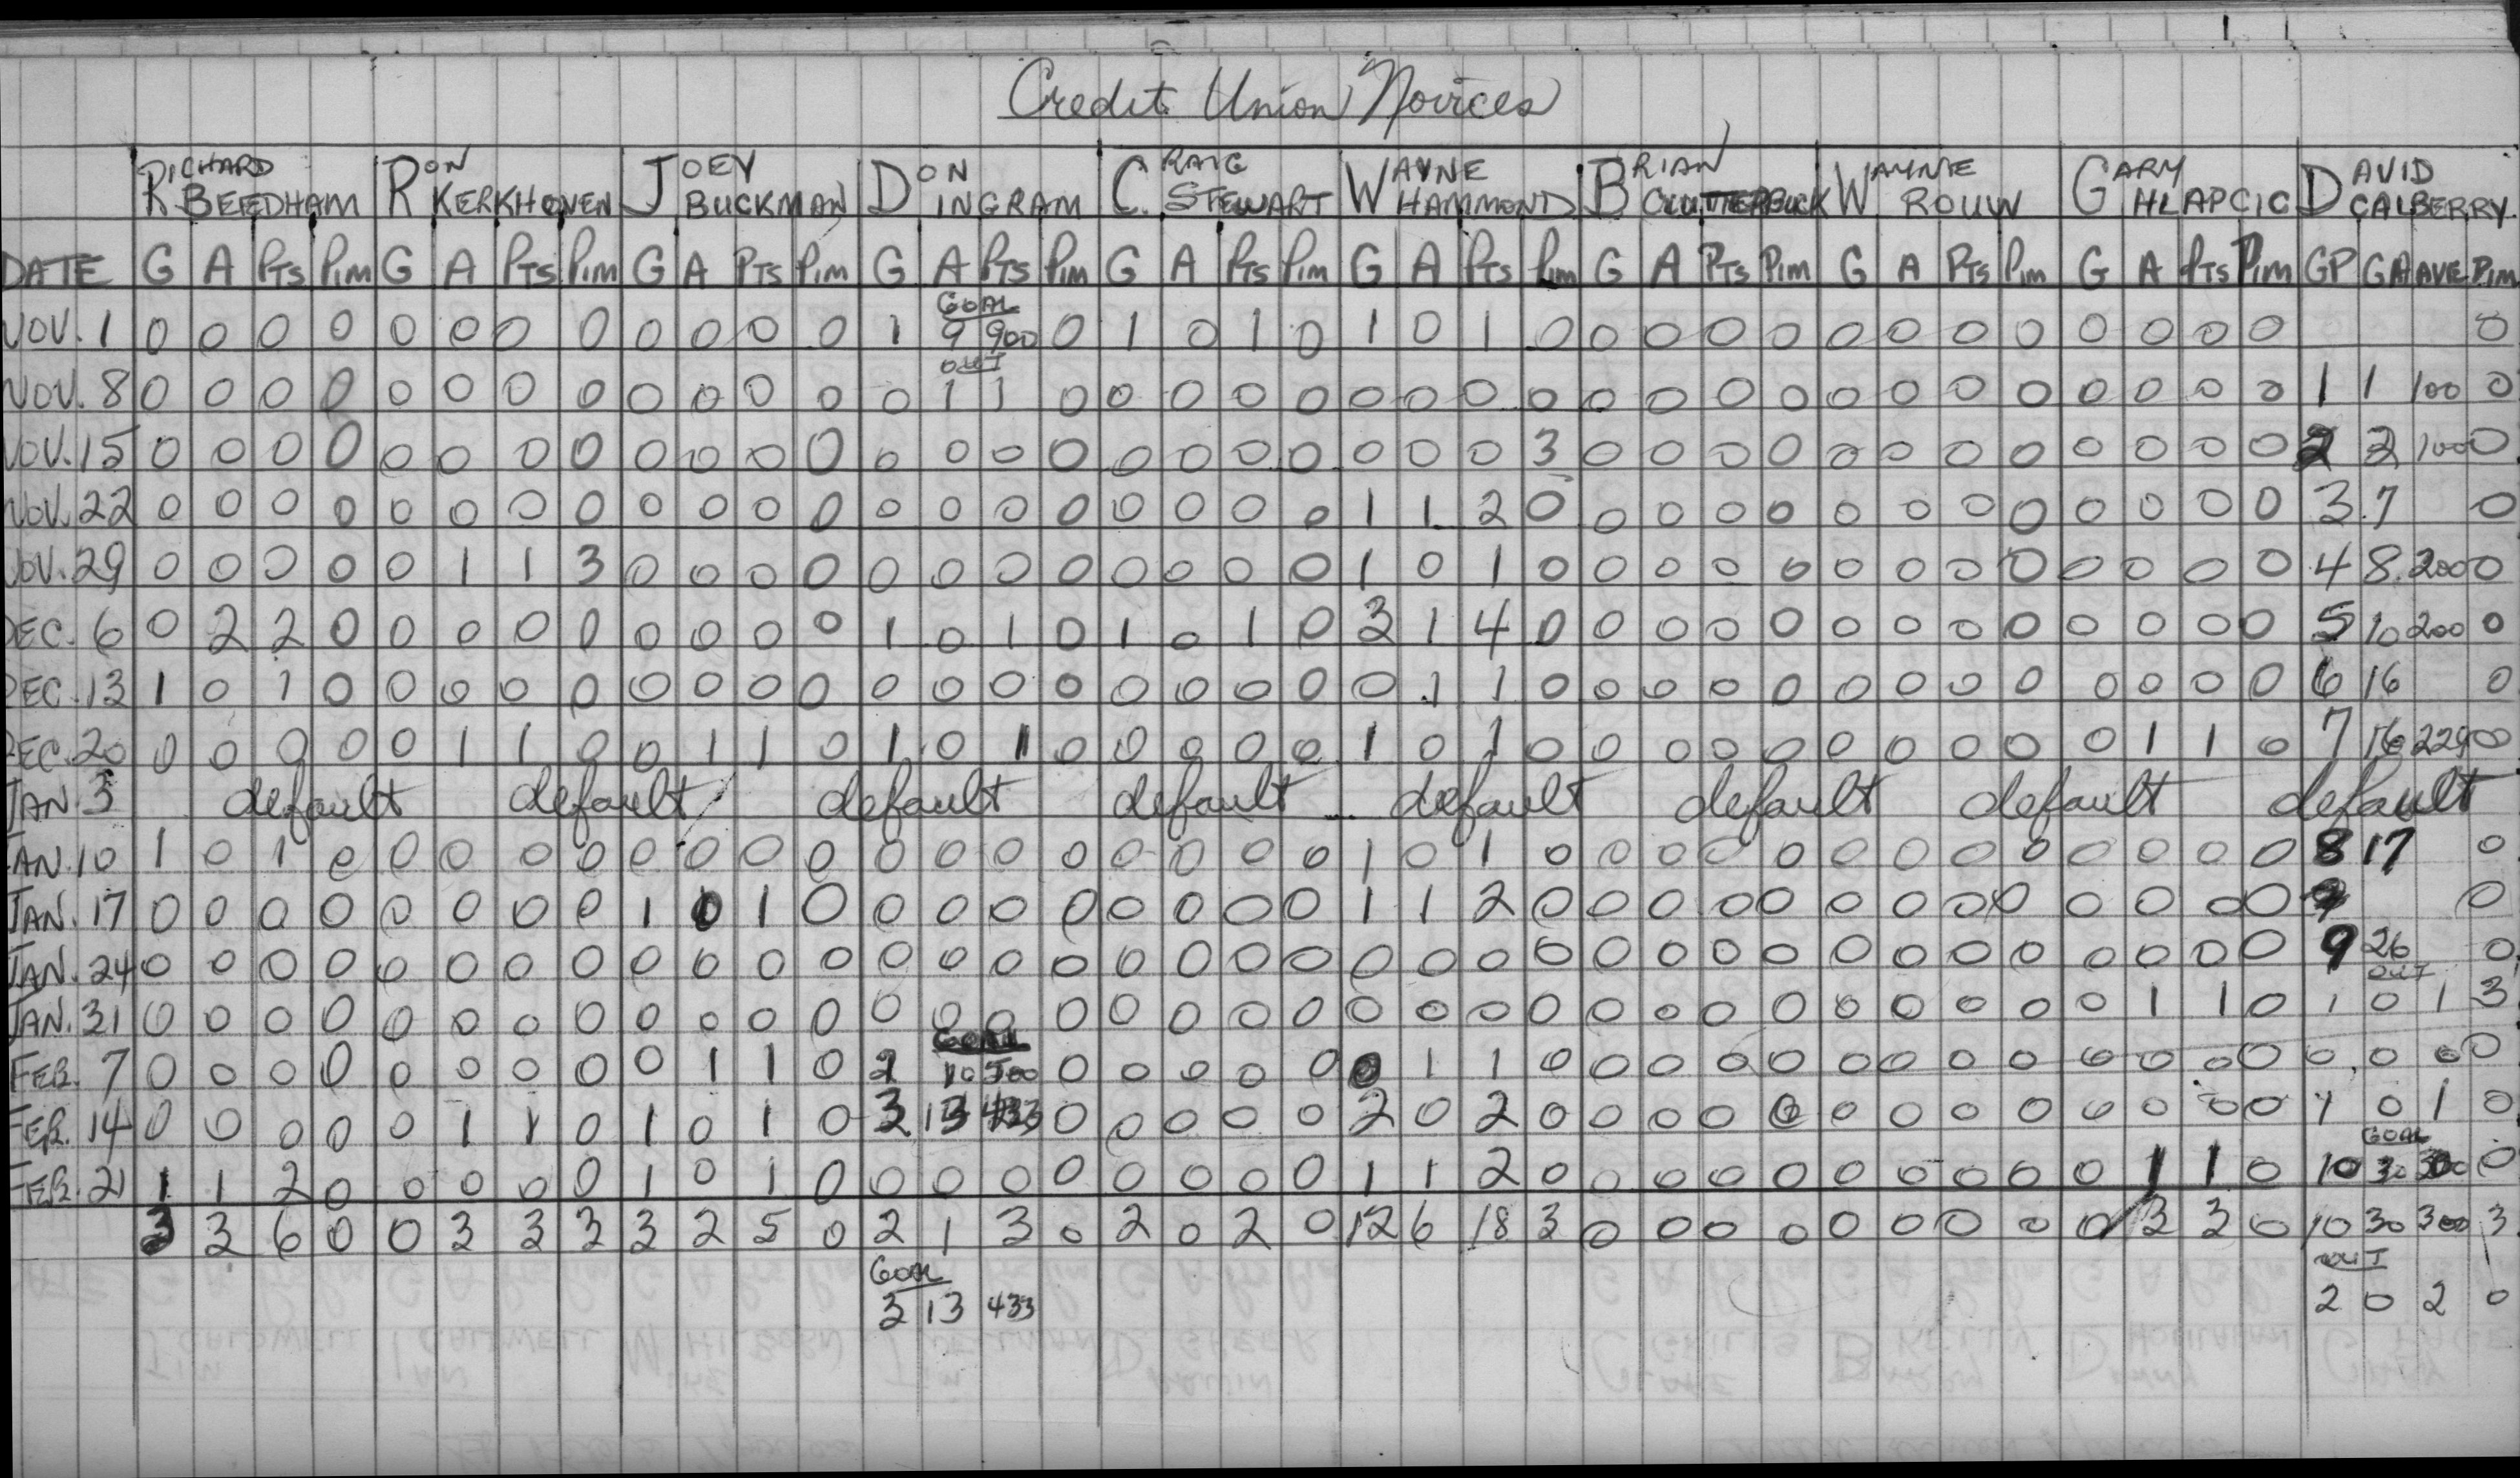 Credit Union Novices
RICHARD BEEDHAM RON KERKHOVEN JOEY BUCKMAN DON INGRAM CRAIG STEWART WAYNE HAMMOND BRIAN CLUTTERBUCK WAYNE ROUW GARY HLAPCIC DAVID CALBERRY
DATE G A PTS PIM G A PTS PIM G A PTS PIM G A PTS PIM G A PTS PIM G A PTS PIM G A PTS PIM G A PTS PIM G A PTS PIM GP GA AVE PIM
GOAL
NOV. 1 0 0 0 0 0 0 0 0 0 0 0 0 1 9 900 0 1 0 1 0 1 0 1 0 0 0 0 0 0 0 0 0 0 0 0 0 0
OUT
NOV. 8 0 0 0 0 0 0 0 0 0 0 0 0 0 1 1 0 0 0 0 0 0 0 0 0 0 0 0 0 0 0 0 0 0 0 0 0 1 1 100 0
NOV. 15 0 0 0 0 0 0 0 0 0 0 0 0 0 0 0 0 0 0 0 0 0 0 0 3 0 0 0 0 0 0 0 0 0 0 0 0 2 2 100 0
NOV. 22 0 0 0 0 0 0 0 0 0 0 0 0 0 0 0 0 0 0 0 0 1 1 2 0 0 0 0 0 0 0 0 0 0 0 0 0 3 7 0
NOV. 29 0 0 0 0 0 1 1 3 0 0 0 0 0 0 0 0 0 0 0 0 1 0 1 0 0 0 0 0 0 0 0 0 0 0 0 0 4 8 200 0
DEC. 6 0 2 2 0 0 0 0 0 0 0 0 0 1 0 1 0 1 0 1 0 3 1 4 0 0 0 0 0 0 0 0 0 0 0 0 0 5 10 200 0
DEC. 13 1 0 1 0 0 0 0 0 0 0 0 0 0 0 0 0 0 0 0 0 0 1 1 0 0 0 0 0 0 0 0 0 0 0 0 0 6 16 0
DEC. 20 0 0 0 0 0 1 1 0 0 1 1 0 1 0 1 0 0 0 0 0 1 0 1 0 0 0 0 0 0 0 0 0 0 1 1 0 7 16 229 0
JAN. 3 default default default default default default default default
JAN. 10 1 0 1 0 0 0 0 0 0 0 0 0 0 0 0 0 0 0 0 0 1 0 1 0 0 0 0 0 0 0 0 0 0 0 0 0 8 17 0
JAN. 17 0 0 0 0 0 0 0 0 1 0 1 0 0 0 0 0 0 0 0 0 1 1 2 0 0 0 0 0 0 0 0 0 0 0 0 0 0
JAN. 24 0 0 0 0 0 0 0 0 0 0 0 0 0 0 0 0 0 0 0 0 0 0 0 0 0 0 0 0 0 0 0 0 0 0 0 0 9 26 0
OUT
JAN. 31 0 0 0 0 0 0 0 0 0 0 0 0 0 0 0 0 0 0 0 0 0 0 0 0 0 0 0 0 0 0 0 0 0 1 1 0 1 0 1 3
GOAL
FEB. 7 0 0 0 0 0 0 0 0 0 1 1 0 2 10 500 0 0 0 0 0 0 1 1 0 0 0 0 0 0 0 0 0 0 0 0 0 0 0 0 0
FEB. 14 0 0 0 0 0 1 1 0 1 0 1 0 3 13 433 0 0 0 0 0 2 0 2 0 0 0 0 0 0 0 0 0 0 0 0 0 1 0 1 0
GOAL
FEB. 21 1 1 2 0 0 0 0 0 1 0 1 0 0 0 0 0 0 0 0 0 1 1 2 0 0 0 0 0 0 0 0 0 0 1 1 0 10 30 300 0
3 3 6 0 0 3 3 3 3 2 5 0 2 1 3 0 2 0 2 0 12 6 18 3 0 0 0 0 0 0 0 0 0 3 3 0 10 30 300 3
GOAL OUT
3 13 433 2 0 2 0